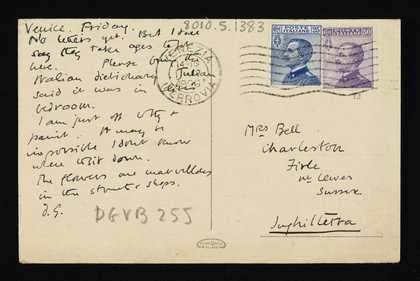 Venice. Friday.
No letters yet. But I dare
say they take ages to get
here. Please bring the
Italian dictionary
said it was in
bedroom.
I am just off to try &
paint. It may be
impossible I don't know
where to sit down.
The flowers are marvellous
in the street shops.
D.G.
DGVB 255
8010.5.1383
VENEZIA
FERROVIA
Mrs Bell
Charleston
Firle
nr Lewes
Sussex
Inghilterra